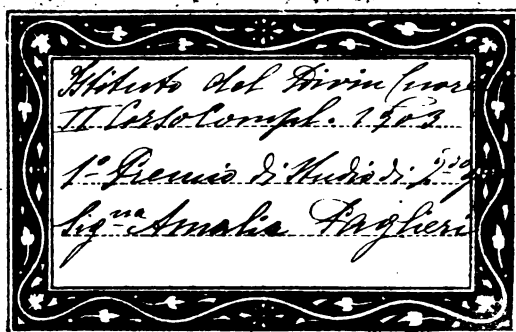 Istituto del Divin Cuore
II Corso Compl. 1903
1º Premio di Studio di
Sig.na Amalia Paglieri